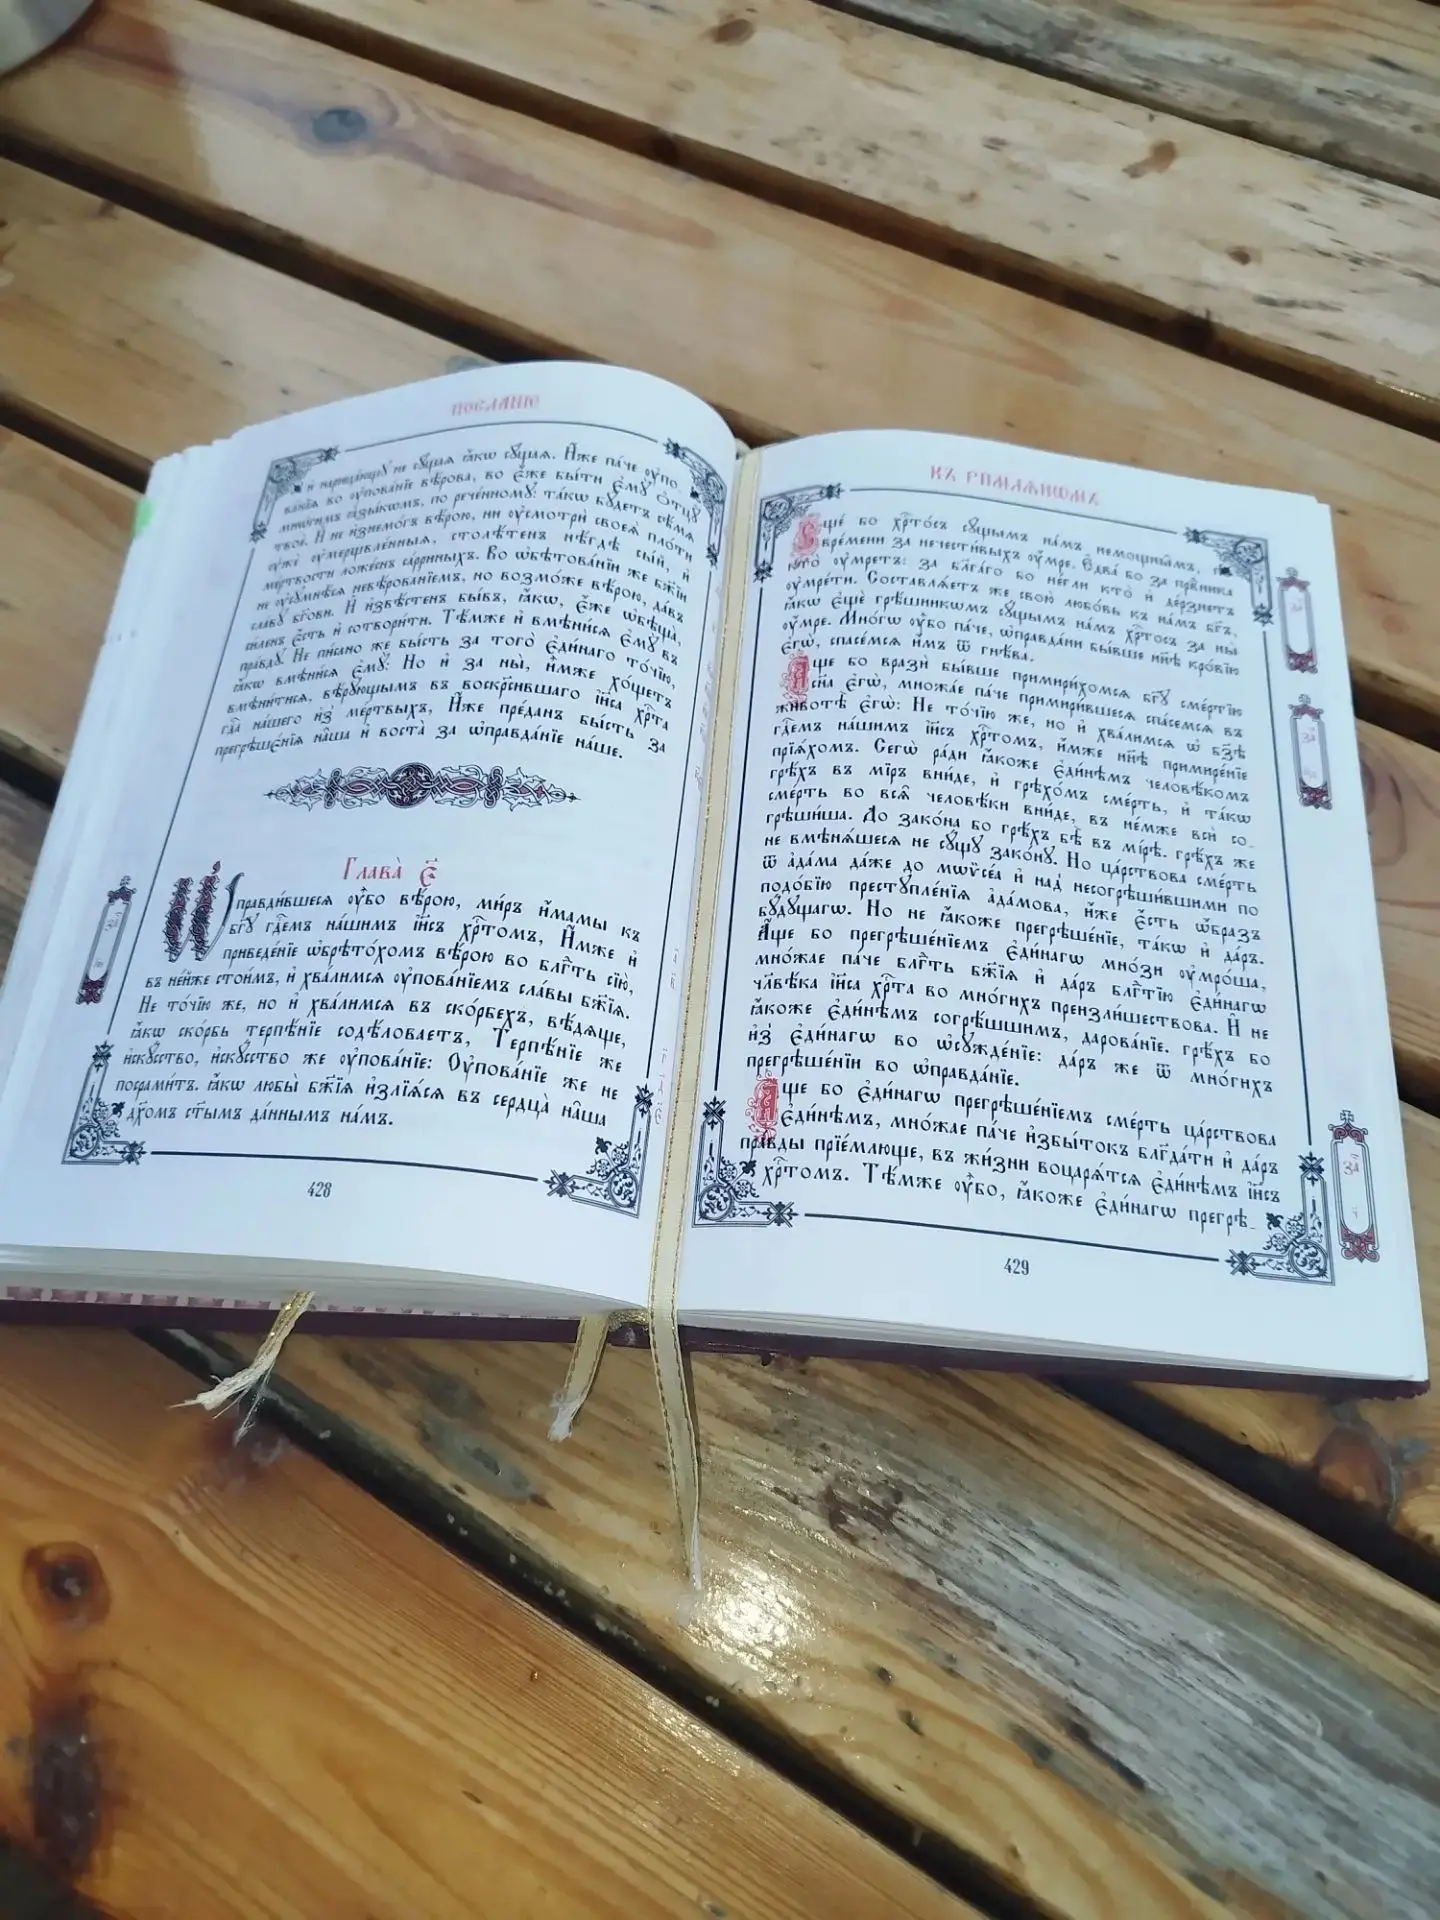 ПОСЛАНІЕ
и нарица́ющу не сꙋ̑щаѧ ꙗ҆́кѡ сꙋ̑щаѧ. И҆́же па́че ᲂу҆по-
ва́нїѧ во ᲂу҆пова́нїе вѣ́рова, во є҆́же бы́ти є҆мꙋ̀ ѻ҆тцꙋ̀
мнѡ́гимъ ꙗ҆зы́кѡмъ, по рече́нномꙋ: та́кѡ бꙋ́детъ сѣ́мѧ
твоѐ. И҆ не и҆знемо́гъ вѣ́рою, ни ᲂу҆смотрѝ своеѧ̀ пло́ти
ᲂу҆жѐ ᲂу҆мерщвле́нныѧ, столѣ́тенъ нѣ́гдѣ сы́й, и҆
ме́ртвости ложе́снъ са́рриныхъ. Во ѡ҆бѣтова́нїи же бж҃їи
не ᲂу҆сꙋмнѣ́сѧ невѣ́рованїемъ, но возмо́же вѣ́рою, да́въ
сла́вꙋ бг҃ови. И҆ и҆звѣ́стенъ бы́въ, ꙗ҆́кѡ, є҆́же ѡ҆бѣща̀,
си́ленъ є҆́сть и҆ сотвори́ти. Тѣ́мже и҆ вмѣни́сѧ є҆мꙋ̀ въ
пра́вдꙋ. Не пи́сано же бы́сть за того̀ є҆ди́наго то́чїю,
ꙗ҆́кѡ вмѣни́сѧ є҆мꙋ̀: Но и҆ за ны̀, и҆̀мже хо́щетъ
вмѣни́тисѧ, вѣ́рꙋющымъ въ воскр҃си́вшаго і҆и҃са хрⷭ҇та̀
гдⷭ҇а на́шего и҆з̾ ме́ртвыхъ, И҆́же пре́данъ бы́сть за
прегрѣшє́нїѧ на̑ша и҆ воста̀ за ѡ҆правда́нїе на́ше.
Глава̀ є҃
Ѡ҆правди́вшесѧ ᲂу҆̀бо вѣ́рою, ми́ръ и҆́мамы къ
бг҃ꙋ гдⷭ҇емъ на́шимъ і҆и҃съ хрⷭ҇то́мъ, И҆́мже и҆
приведе́нїе ѡ҆брѣто́хомъ вѣ́рою во блгⷣть сїю̀,
въ не́йже стои́мъ, и҆ хва́лимсѧ ᲂу҆пова́нїемъ сла́вы бж҃їѧ.
Не то́чїю же, но и҆ хва́лимсѧ въ ско́рбехъ, вѣ́дѧще,
ꙗ҆́кѡ ско́рбь терпѣ́нїе содѣ́ловаетъ, Терпѣ́нїе же
и҆скꙋ́сство, и҆скꙋ́сство же ᲂу҆пова́нїе: Оу҆пова́нїе же не
посрами́тъ. ꙗ҆́кѡ любы̀ бж҃їѧ и҆злїѧ́сѧ въ сердца̀ на̑ша
дх҃омъ ст҃ы́мъ да́ннымъ на́мъ.
428
КЪ РИМЛѦНѠМЪ
Є҆ще́ бо хрⷭ҇то́съ сꙋ́щымъ на́мъ немѡщны̑мъ, по
вре́мени за нечести́выхъ ᲂу҆́мре. Є҆два́ бо за првⷣника
кто̀ ᲂу҆́мретъ: за бл҃га́го бо не́гли кто̀ и҆ де́рзнетъ
ᲂу҆мре́ти. Составлѧ́етъ же свою̀ любо́вь къ на́мъ бг҃ъ,
ꙗ҆́кѡ є҆щѐ грѣ́шникѡмъ сꙋ́щымъ на́мъ хрⷭ҇то́съ за ны̀
ᲂу҆́мре. Мно́гѡ ᲂу҆̀бо па́че, ѡ҆правда́ни бы́вше нн҃ѣ кро́вїю
є҆гѡ̀, спасе́мсѧ и҆́мъ ѿ гнѣ́ва.
А҆́ще бо вразѝ бы́вше примири́хомсѧ бг҃ꙋ сме́ртїю
сн҃а є҆гѡ̀, мно́жае па́че примири́вшесѧ спасе́мсѧ въ
животѣ̀ є҆гѡ̀: Не то́чїю же, но и҆ хва́лимсѧ ѡ҆ бз҃ѣ
гдⷭ҇емъ на́шимъ і҆и҃съ хрⷭ҇то́мъ, и҆́мже нн҃ѣ примире́нїе
прїѧ́хомъ. Сегѡ̀ ра́ди ꙗ҆́коже є҆ди́нѣмъ человѣ́комъ
грѣ́хъ въ мі́ръ вни́де, и҆ грѣхо́мъ сме́рть, и҆ та́кѡ
сме́рть во всѧ̑ человѣ́ки вни́де, въ не́мже всѝ со-
грѣши́ша. До зако́на бо грѣ́хъ бѣ̀ въ мі́рѣ. грѣ́хъ же
не вмѣнѧ́шесѧ не сꙋ́щꙋ зако́нꙋ. Но ца́рствова сме́рть
ѿ а҆да́ма да́же до мѡѷсе́а и҆ над̾ несогрѣши́вшими по
подо́бїю престꙋпле́нїѧ а҆да́мова, и҆́же є҆́сть ѡ҆́бразъ
бꙋ́дꙋщагѡ. Но не ꙗ҆́коже прегрѣше́нїе, та́кѡ и҆ да́ръ.
А҆́ще бо прегрѣше́нїемъ є҆ди́нагѡ мно́зи ᲂу҆мро́ша,
мно́жае па́че блгⷣть бж҃їѧ и҆ да́ръ блгⷣтїю є҆ди́нагѡ
чл҃вѣ́ка і҆и҃са хрⷭ҇та̀ во мно́гихъ преизли́шествова. И҆ не
ꙗ҆́коже є҆ди́нѣмъ согрѣ́шшимъ, дарова́нїе. грѣ́хъ бо
и҆з̾ є҆ди́нагѡ во ѡ҆сꙋжде́нїе: да́ръ же ѿ мно́гихъ
прегрѣше́нїи во ѡ҆правда́нїе.
А҆́ще бо є҆ди́нагѡ прегрѣше́нїемъ сме́рть ца́рствова
є҆ди́нѣмъ, мно́жае па́че и҆збы́токъ блг҃да́ти и҆ да́ръ
пра́вды прїе́млюще, въ жи́зни воцарѧ́тсѧ є҆ди́нѣмъ і҆и҃съ
хрⷭ҇то́мъ. Тѣ́мже ᲂу҆̀бо, ꙗ҆́коже є҆ди́нагѡ прегрѣ-
429